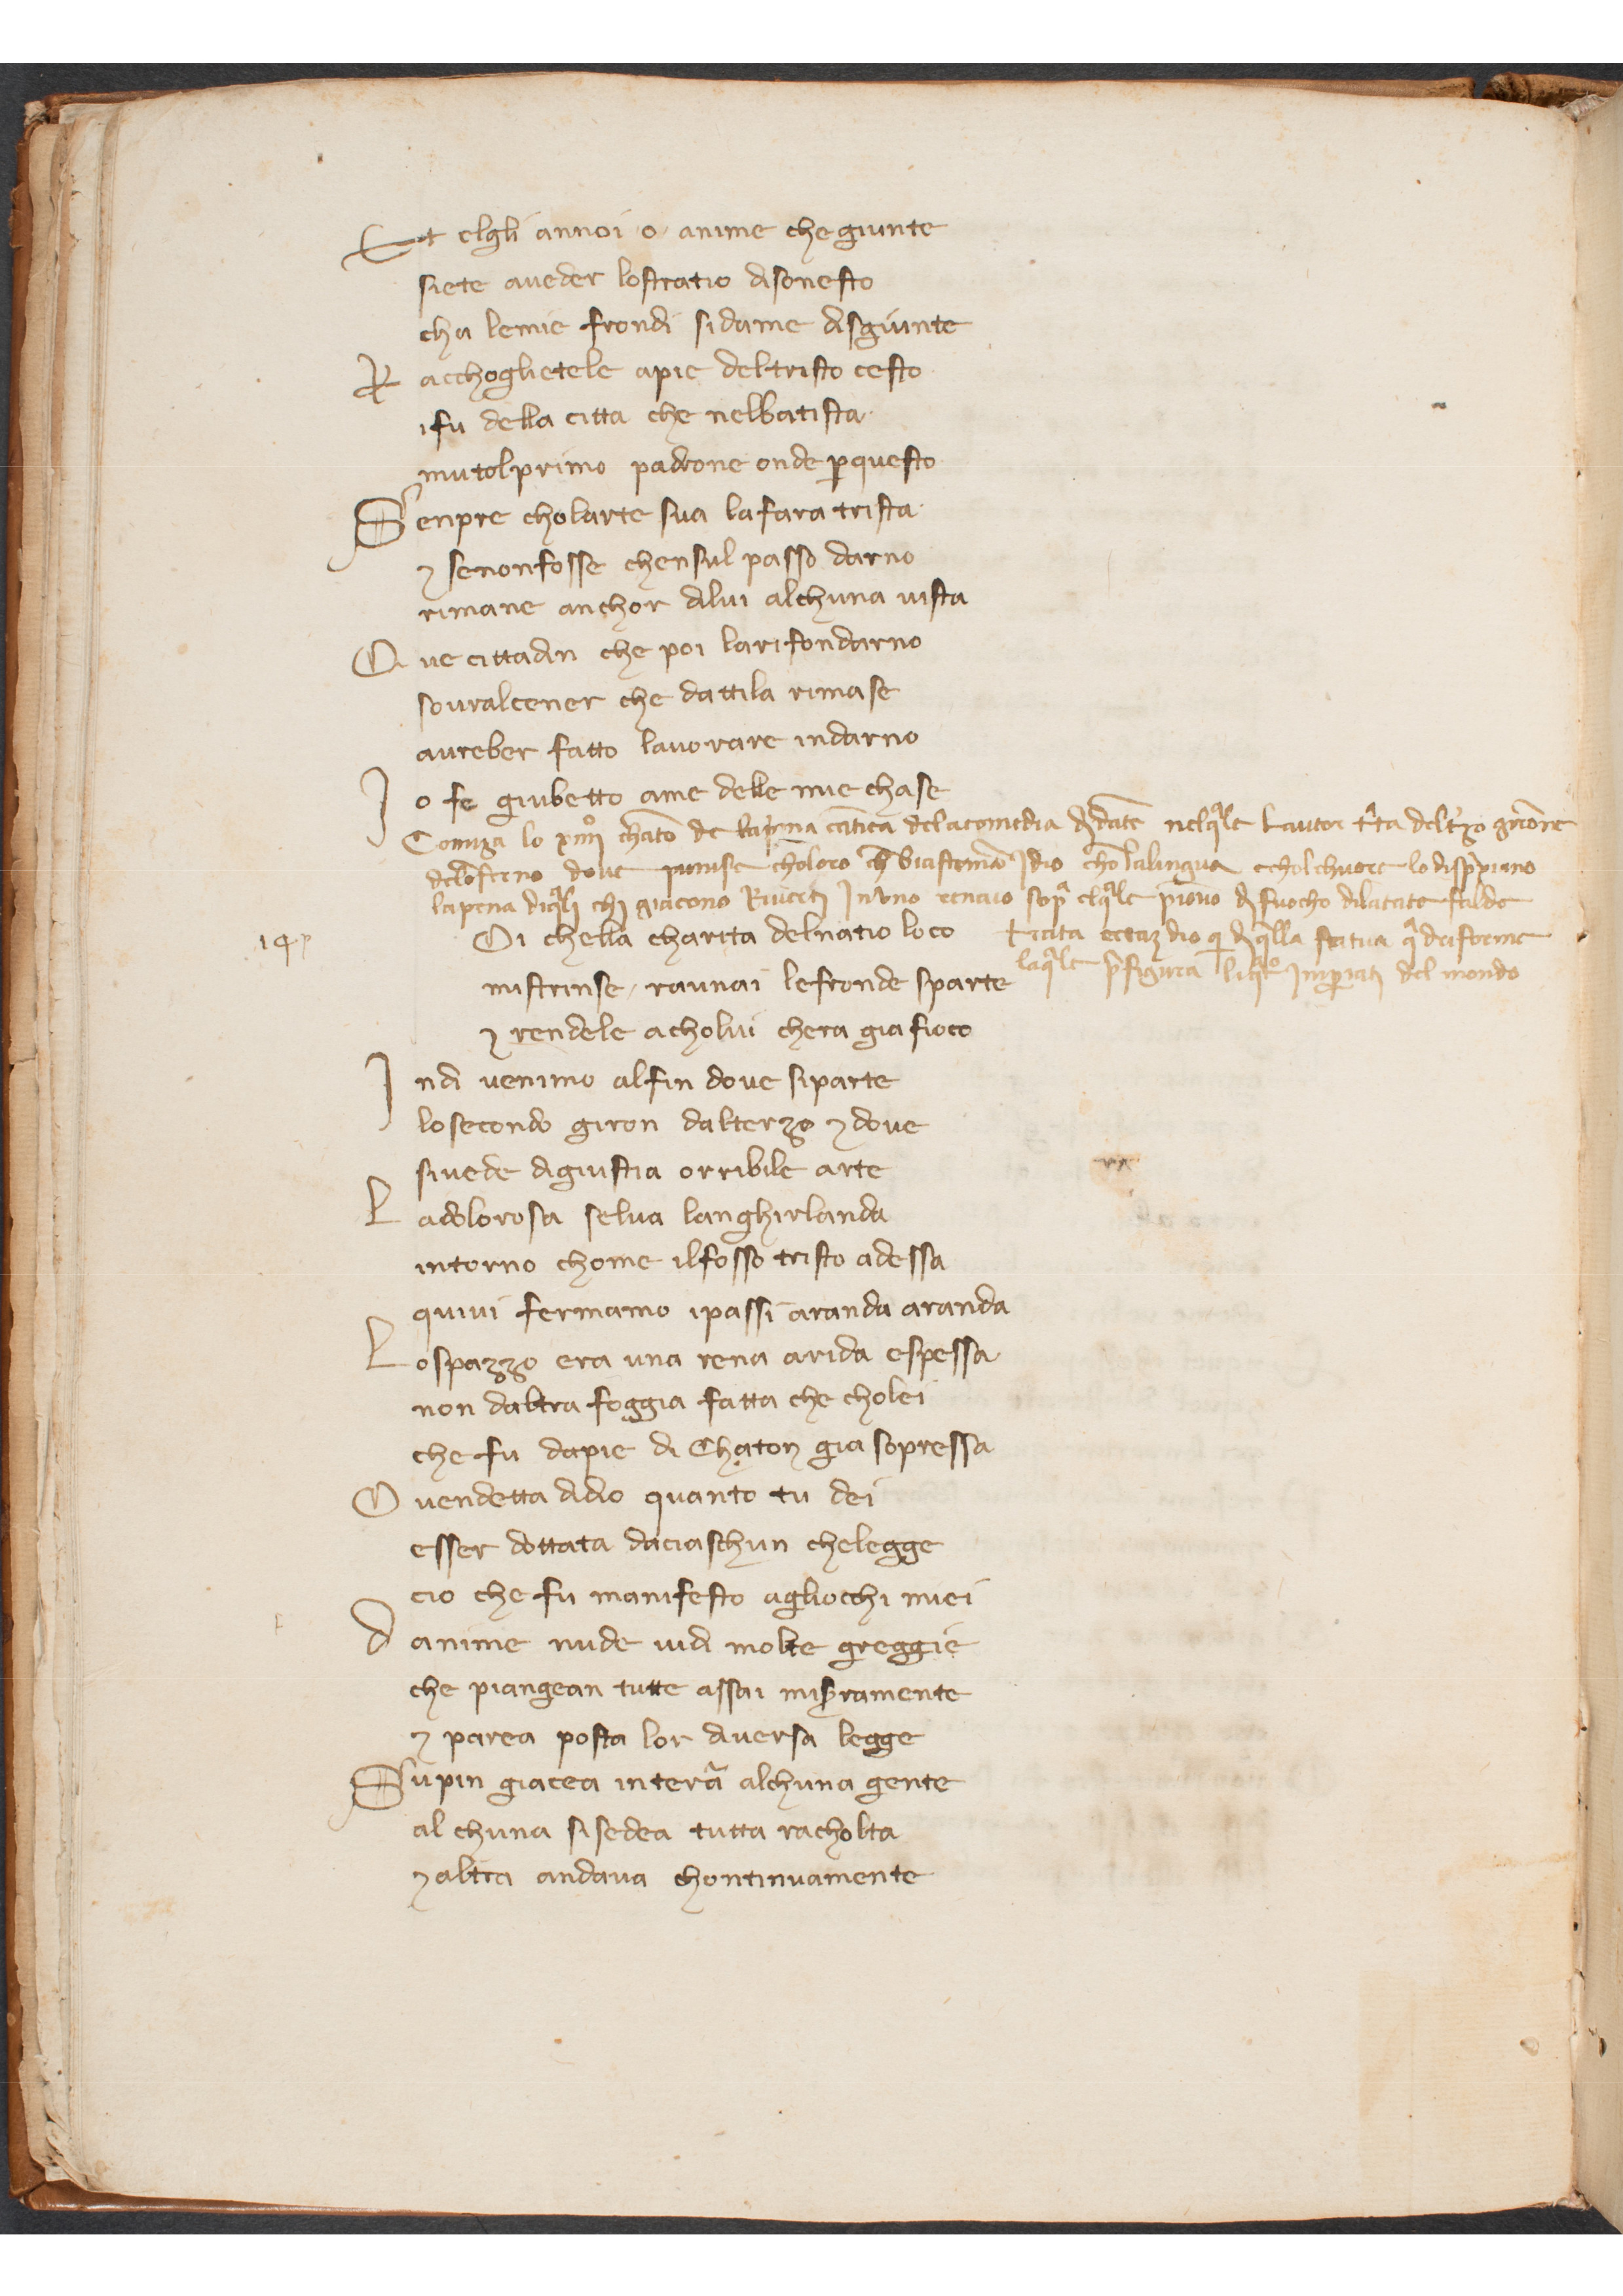 Et elgli annoi ·o· anime che giunte
siete aueder lostratio disonesto
cha lemie frondi sidame disgiunte
R acchoglietele apie deltristo cesto
ifu della citta che nelbatista
mutolprimo padrone onde ꝑquesto
Senpre cholarte sua lafara trista
⁊ senonfosse chensul passo darno
rimane anchor dilui alchuna uista
Que cittadin che poi larifondarno
souralcener che dattila rimase
aureber fatto lauorare indarno
Io fe giubetto ame delle mie chase
Comīza lo xiiij° chāto de la pͥma cātica delacomedia di dāte nelqͣle lautor tͣta del tʼzo girōne
delōferno doue punisse choloro chē biastemāo Idio chō lalingua echolchuore lo dispʼpiano
lapena diqͣli chi giacono Riuerti In vno renaio sopͣ elqͣle pioueno di fuocho dilatate falde
14
Oi chella charita delnatio loco
trata
dio
di qͣlla statua
mistrinse / raunai lefronde sparte
laqͣle pʼfigura
del mondo
⁊ rendele acholui chera gia fioco
Indi uenimo alfin doue siparte
losecondo giron dalterzo ⁊ doue
siuede digiustia orribile arte
Ladolorosa selua langhirlanda
intorno chome ilfosso tristo adessa
quiui fermamo ipassi aranda aranda
Lospazzo era una rena arida espessa
non daltra foggia fatta che cholei
che fu dapie di Chaton gia sopressa
O uendetta didio quanto tu dei
esser dottata daciaschun chelegge
cio che fu manifesto agliocchi miei
D anime nude uidi molte greggie
che piangean tutte assai miseramente
⁊ parea posta lor diuersa legge
Supin giacea interā alchuna gente
al chuna sisedea tutta racholta
⁊ altra andaua chontinuamente